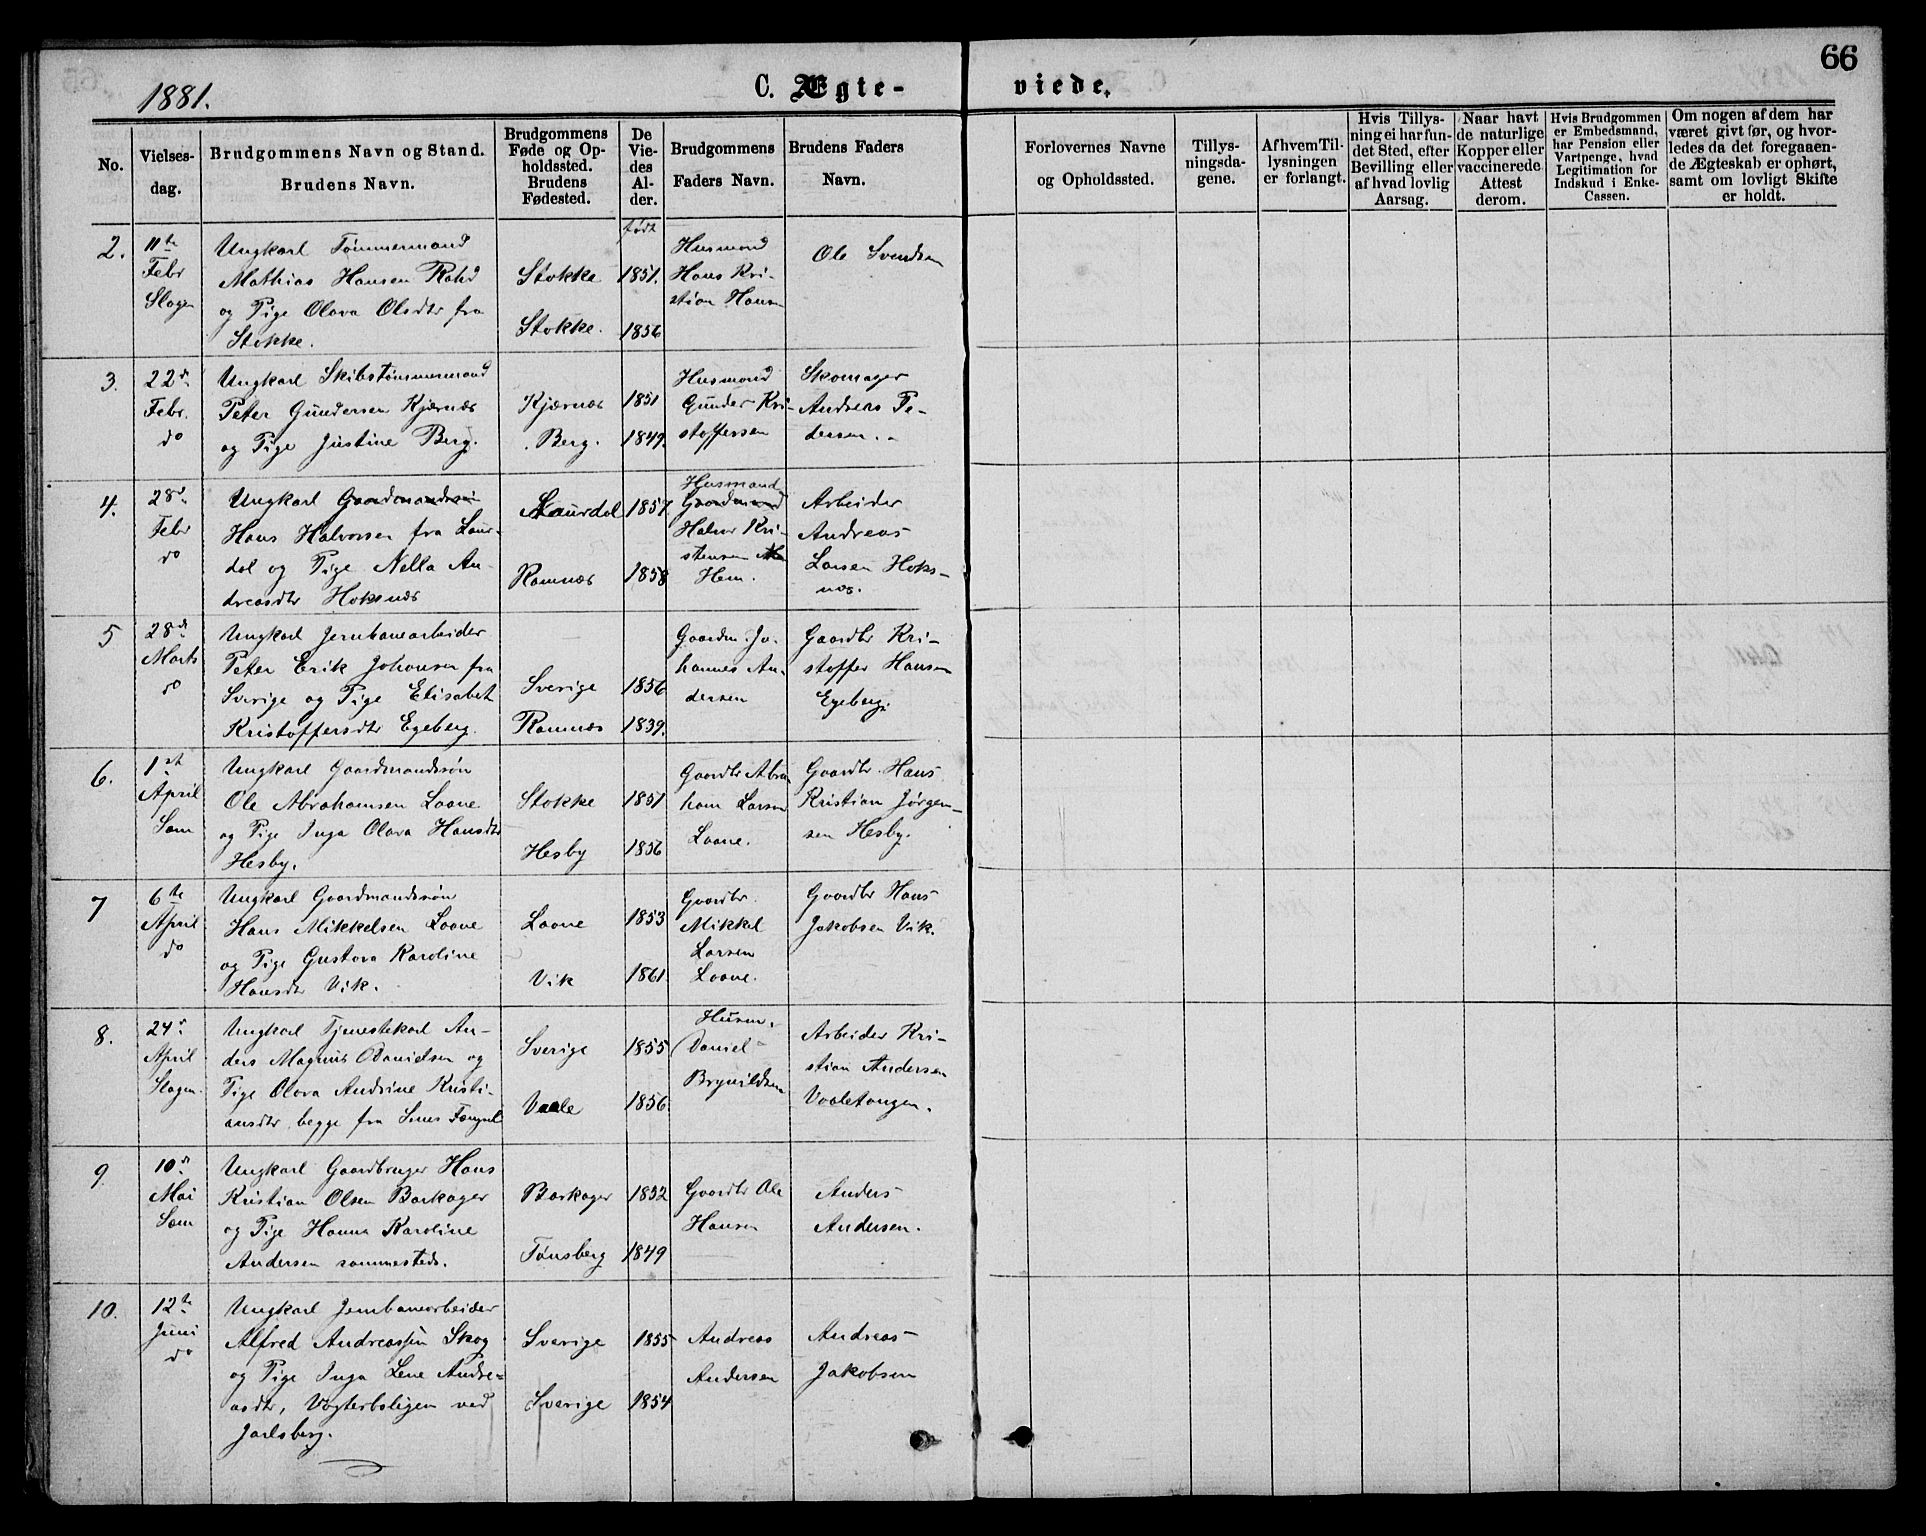 66
1881.
C. Ægte-
viede.
No.
Vielses-
dag.
Brudgommens Navn og Stand.
Brudens Navn.
Brudgommens
Føde og Op-
holdssted.
Brudens
Fødested.
De
Vie-
des
Al-
der.
Brudgommens
Faders Navn.
Brudens Faders
Navn.
Forlovernes Navne
og Opholdssted.
Tillys-
ningsda-
gene.
Af hvem Til-
lysningen
er forlangt.
Hvis Tillys-
ning ei har fun-
det Sted, efter
Bevilling eller
af hvad lovlig
Aarsag.
Naar havt
de naturlige
Kopper eller
vaccinerede.
Attest
derom.
Hvis Brudgommen
er Embedsmand,
har Pension eller
Vartpenge, hvad
Legitimation for
Indskud i Enke-
Cassen.
Om nogen af dem har
været givt før, og hvor-
ledes da det foregaaen-
de Ægteskab er ophørt,
samt om lovligt Skifte
er holdt.
født
2.
11te
Febr
Slagen
Ungkarl Tømmermand
Mathias Hansen
og Pige Olava Olsdtr fra
Stokke.
Stokke
Stokke.
1851.
1856
Husmand
Hans Kri-
stian Hansen
Ole Svendsen
3.
22de
Febr.
do
Ungkarl Skibstømmermand
Peter Gundersen Kjærnæs
og Pige Justine Berg.
Kjærnæs
Berg.
1851
1849.
Husmand
Gunder Kri-
stoffersen
Skomager
Andreas Pe-
dersen.
4.
28de
Febr
do
Ungkarl Gaardmandssøn
Hans Halvorsen fra Laur-
dal og Pige Nella An-
dreasdtr Hoksnæs
Laurdal
Ramnæs
1857
1858
Husmand
Gaardmand
Halvor Kri-
stensen
Hem.
Arbeider
Andreas
Larsen Hoks-
næs.
5
28de
Marts
do
Ungkarl Jernbanearbeider
Peter Erik Johansen fra
Sverige og Pige Elisabet
Kristoffersdtr Egeberg.
Sverige
Ramnæs
1856
1839.
Gaardm. Jo-
hannes An-
dersen
Gaardbr Kri-
stoffer Hansen
Egeberg.
6.
1st
April
Sem
Ungkarl Gaardmandssøn
Ole Abrahamsen Laane
og Pige Inga Olava Hansdtr
Hesby.
Stokke
Hesby
1851
1856
Gaardbr Abra
ham Larsen
Laane.
Gaardbr. Hans
Kristian Jørgen-
sen Hesby.
7
6te
April
do
Ungkarl Gaardmandssøn
Hans Mikkelsen Laane
og Pige Gustava Karoline
Hansdtr Vik.
Laane
Vik
1853
1861.
Gaardbr.
Mikkel
Larsen
Laane.
Gaardbr Hans
Jakobsen Vik.
8.
24de
April
Slagen.
Ungkarl Tjenestekarl An-
ders Magnus Danielsen og
Pige Olava Andrine Kristi-
ansdtr. begge fra Sems Fængsel
Sverige
Vaale
1855
1856.
Husm.
Daniel
Brynildsen
Arbeider Kri-
stian Andersen
Vaaletangen.
9
10de
Mai
Sem
Ungkarl Gaardbruger Hans
Kristian Olsen Barkager
og Pige Hanna Karoline
Andersen sammesteds.
Barkager
Tønsberg
1852
1849
Gaardbr Ole
Hansen
Anders
Andersen.
10.
12te
Juni
do
Ungkarl Jernbanearbeider
Alfred Andreassen Skog
og Pige Inga Lene Andre-
asdtr, Vogterboligen ved
Jarlsberg.
Sverige
Sverige
1855
1854
Andreas
Andersen
Andreas
Jakobsen